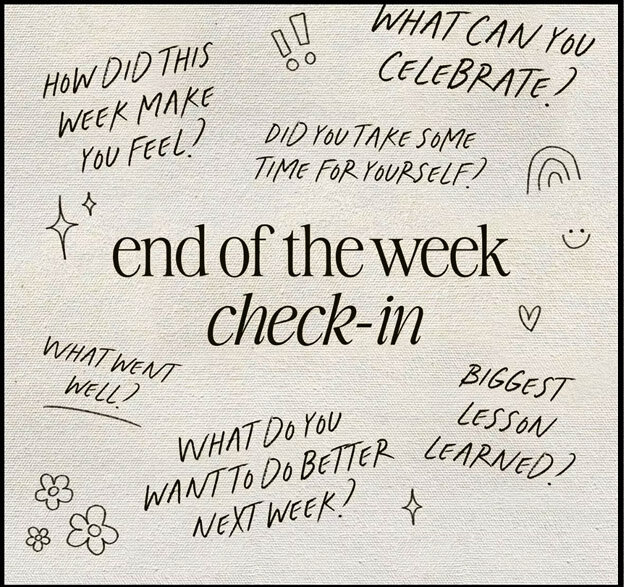 HOW DID THIS
WEEK MAKE
YOU FEEL?
!!
WHAT CAN YOU
CELEBRATE?
DID YOU TAKE SOME
TIME FOR YOURSELF?
end of the week
check-in
WHAT WENT
WELL?
WHAT DO YOU
WANT TO DO BETTER
NEXT WEEK?
BIGGEST
LESSON
LEARNED?